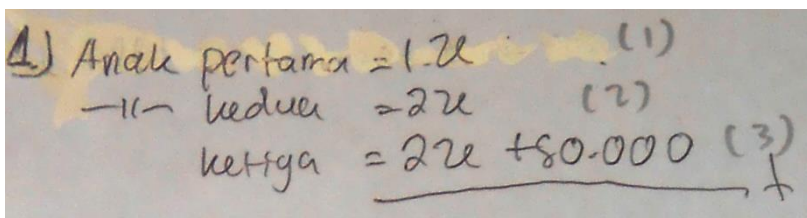 1.) Anak pertama = 1.x (1)
-11- kedua = 2x (2)
ketiga = 2x + 80.000 (3)
+